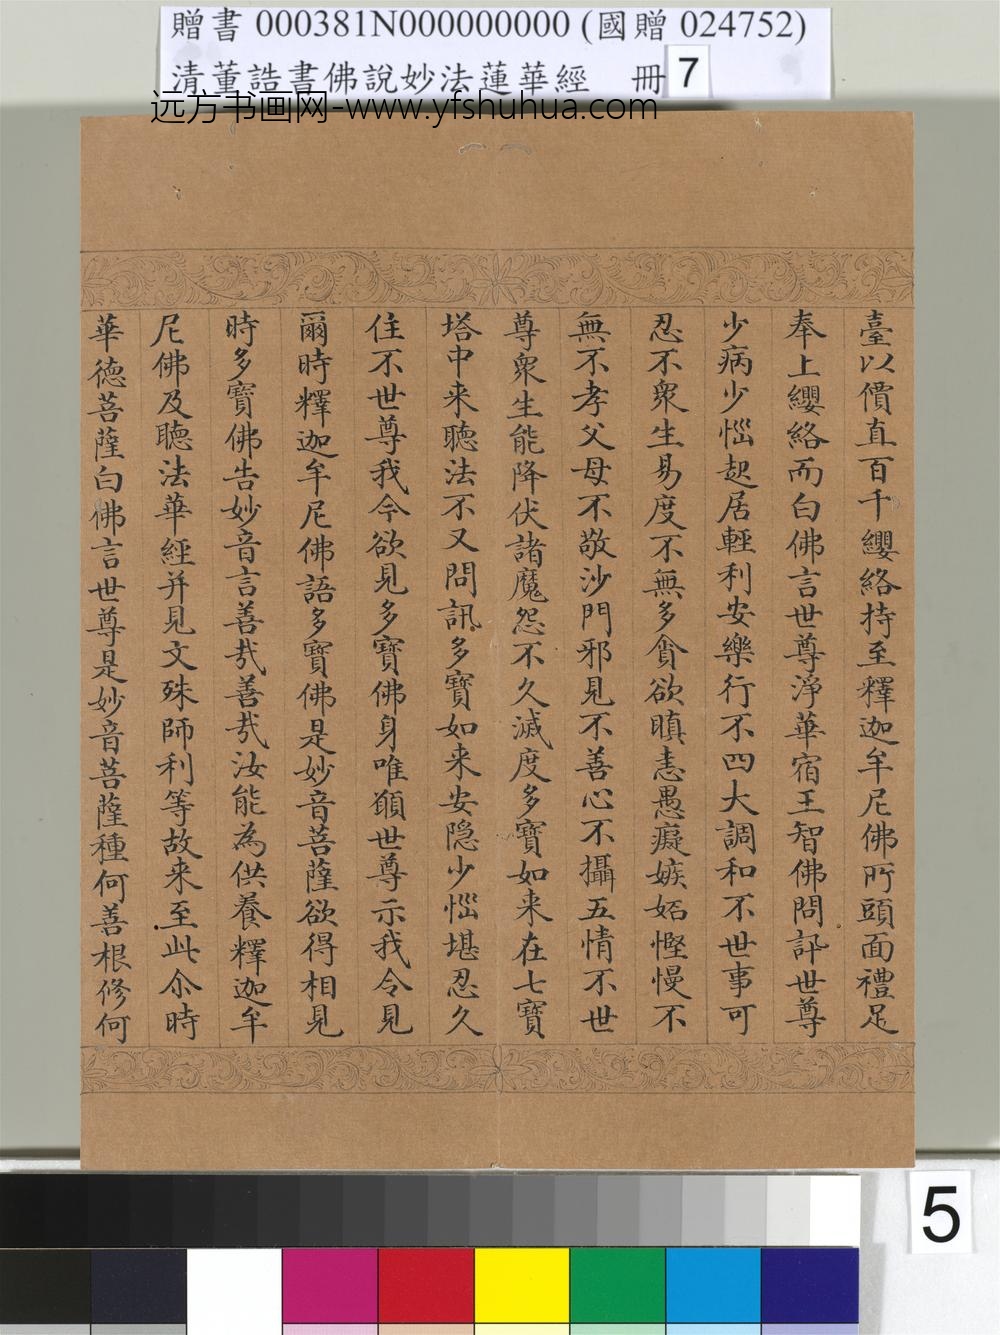 贈書 000381N000000000 (國贈 024752)
清董誥書佛說妙法蓮華經 冊 7
远方书画网-www.yfshuhua.com
臺以價直百千纓絡持至釋迦牟尼佛所頭面禮足
奉上纓絡而白佛言世尊淨華宿王智佛問訊世尊
少病少惱起居輕利安樂行不四大調和不世事可
忍不衆生易度不無多貪欲瞋恚愚癡嫉妬慳慢不
無不孝父母不敬沙門邪見不善心不攝五情不世
尊衆生能降伏諸魔怨不久滅度多寶如来在七寶
塔中来聽法不又問訊多寶如来安隐少惱堪忍久
住不世尊我今欲見多寶佛身唯願世尊示我令見
爾時釋迦牟尼佛語多寶佛是妙音菩薩欲得相見
時多寶佛告妙音言善哉善哉汝能為供養釋迦牟
尼佛及聽法華經并見文殊師利等故来至此尒時
華德菩薩白佛言世尊是妙音菩薩種何善根修何
5